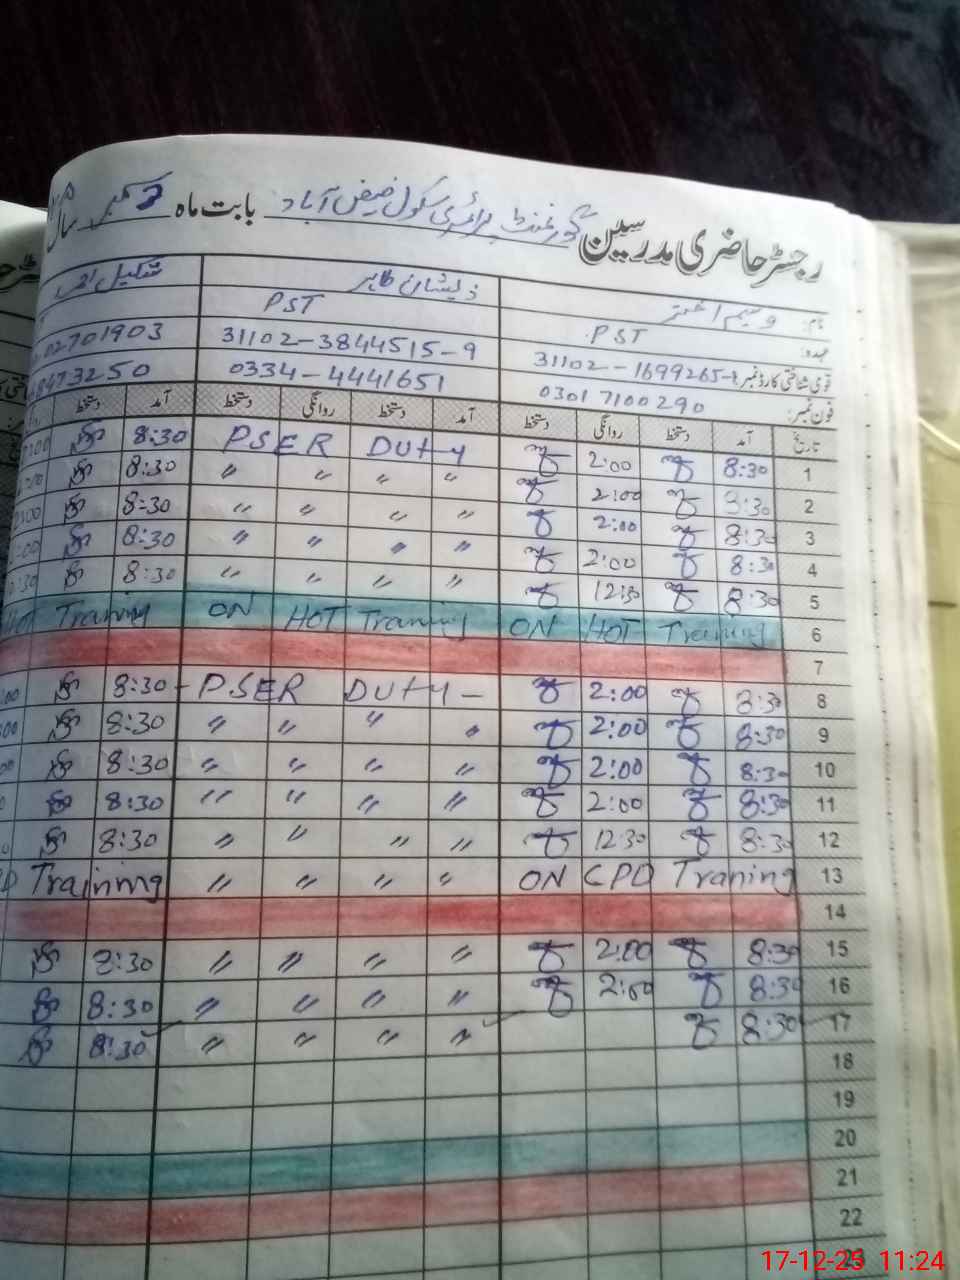 رجسٹر حاضری مدرسین گورنمنٹ پرائمری سکول فیض آباد بابت ماہ دسمبر سال
نام: وسیم اختر ذیشان طاہر شکیل
عہدہ: PST PST
قومی شناختی کارڈ نمبر: 31102-1699265- 31102-3844515-9 02701903
فون نمبر: 03017100290 0334-4441651 8473250
تاریخ آمد دستخط روانگی دستخط آمد دستخط روانگی دستخط آمد دستخط
1 8:30 2:00 PSER Duty 8:30
2 8:30 2:00 " " " " 8:30
3 8:30 2:00 " " " " 8-30
4 8:30 2:00 " " " " 8:30
5 8:30 12:30 " " " " 8:30
6 ON HOT Training ON HOT Traning HOT Training
7
8 8:30 2:00 - PSER Duty - 8:30
9 8:30 2:00 " " " " 8:30
10 8:30 2:00 " " " " 8:30
11 8:30 2:00 " " " " 8:30
12 8:30 12:30 " " " " 8:30
13 ON CPD Traning " " " " Training
14
15 8:30 2:00 " " " " 8:30
16 8:30 2:00 " " " " 8:30
17 8:30 " " " " 8:30
18
19
20
21
22
17-12-25 11:24